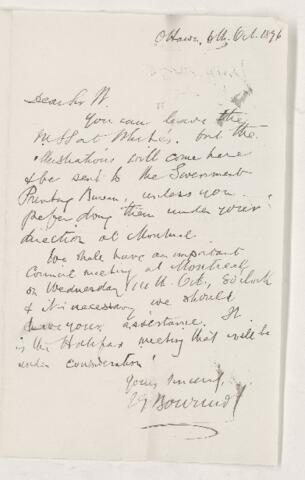 Ottawa, 6th Oct. 1896
Dear Sir W.
You can leave the
M.S. at White's. but the
illustrations will come here
& be sent to the Government
Printing Bureau, unless you
prefer doing them under your
direction at Montreal.
We shall have an important
Council meeting at Montreal
on Wednesday 14th Oct., 8 o'clock
& it is necessary we should
have your assistance. It
is the Halifax meeting that will be
under consideration
Yours sincerely
Bourinot